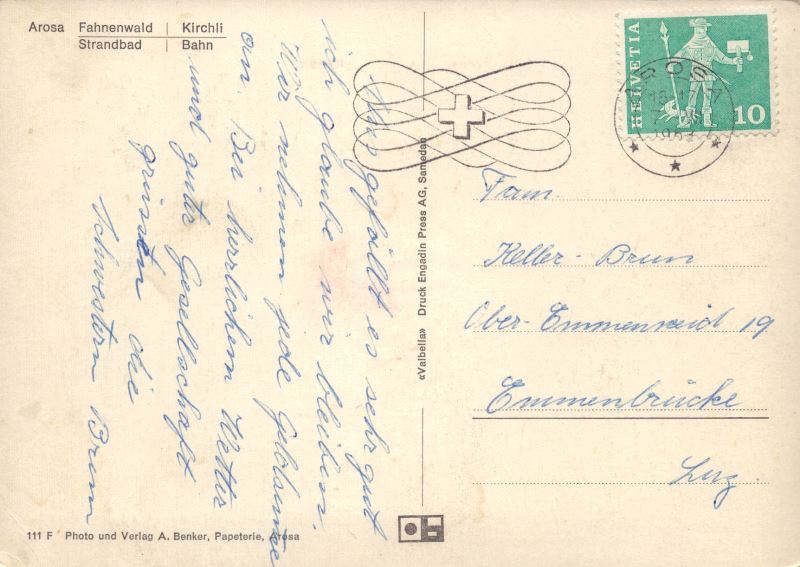 Arosa Fahnenwald | Kirchli
Strandbad | Bahn
Uns gefällt es sehr gut
ich glaube wir bleiben.
Wir nehmen jede
an. Bei herrlichem Wetter
und guter Gesellschaft
grüssen die
Schwestern Brun
«Valbella» Druck Engadin Press AG, Samedan
HELVETIA
10
AROSA
Fam.
Keller-Brun
Ober-Emmenweid 19
Emmenbrücke
Luz.
111 F Photo und Verlag A. Benker, Papeterie, Arosa